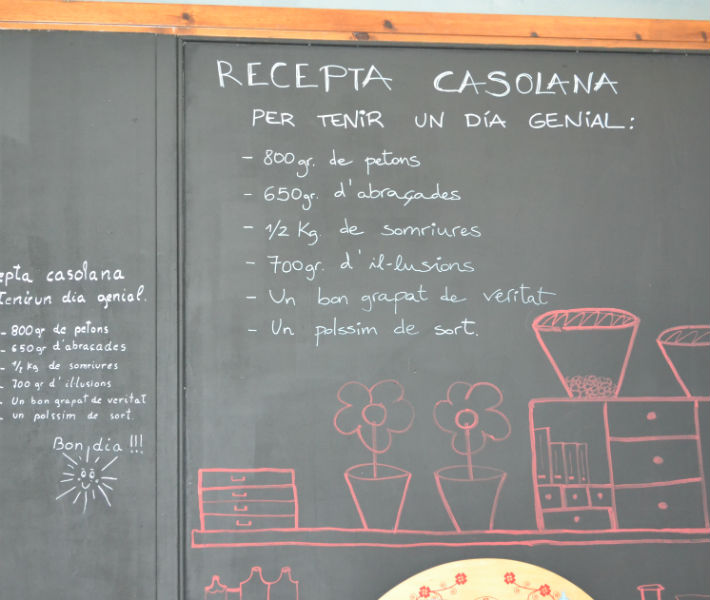 RECEPTA CASOLANA
PER TENIR UN DÍA GENIAL:
- 800gr. de petons
- 650gr. d'abraçades
- 1/2 Kg. de somriures
- 700gr. d'il-lusions
- Un bon grapat de veritat
- Un polssim de sort.
casolana
Tenir un dia genial.
- 800gr de petons
- 650gr d'abraçades
- 1/2 Kg de somriures
- 700 gr d'illusions
- Un bon grapat de veritat
- un polssim de sort.
Bon dia !!!